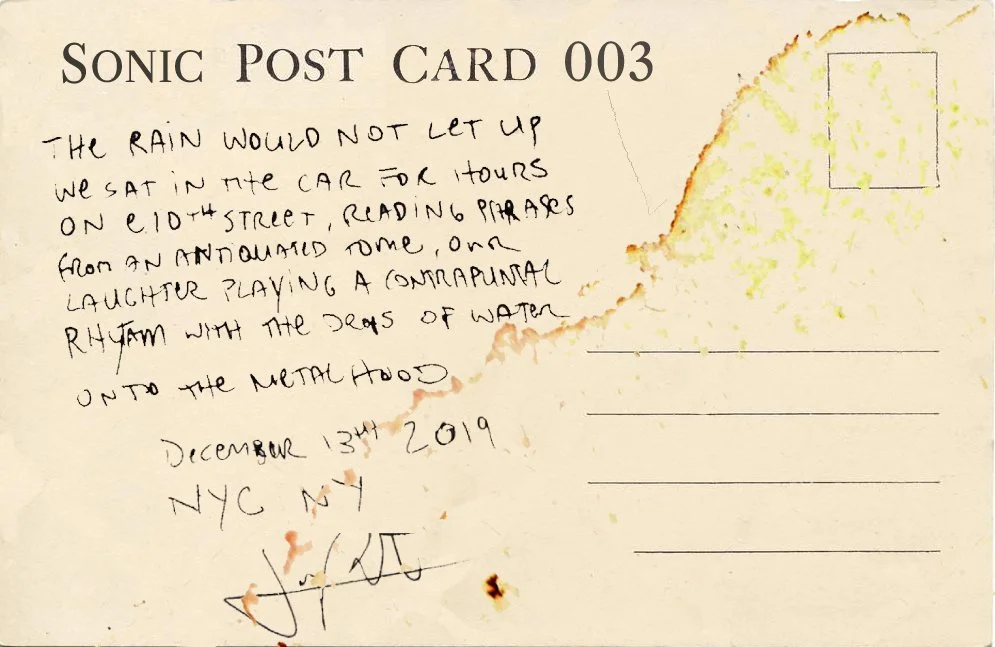 SONIC POST CARD 003
THE RAIN WOULD NOT LET UP
WE SAT IN THE CAR FOR HOURS
ON E.10TH STREET, READING PHRASES
FROM AN ANTIQUATED TOME, OUR
LAUGHTER PLAYING A CONTRAPUNTAL
RHYTHM WITH THE DROPS OF WATER
ONTO THE METAL HOOD
DECEMBER 13TH 2019
NYC NY